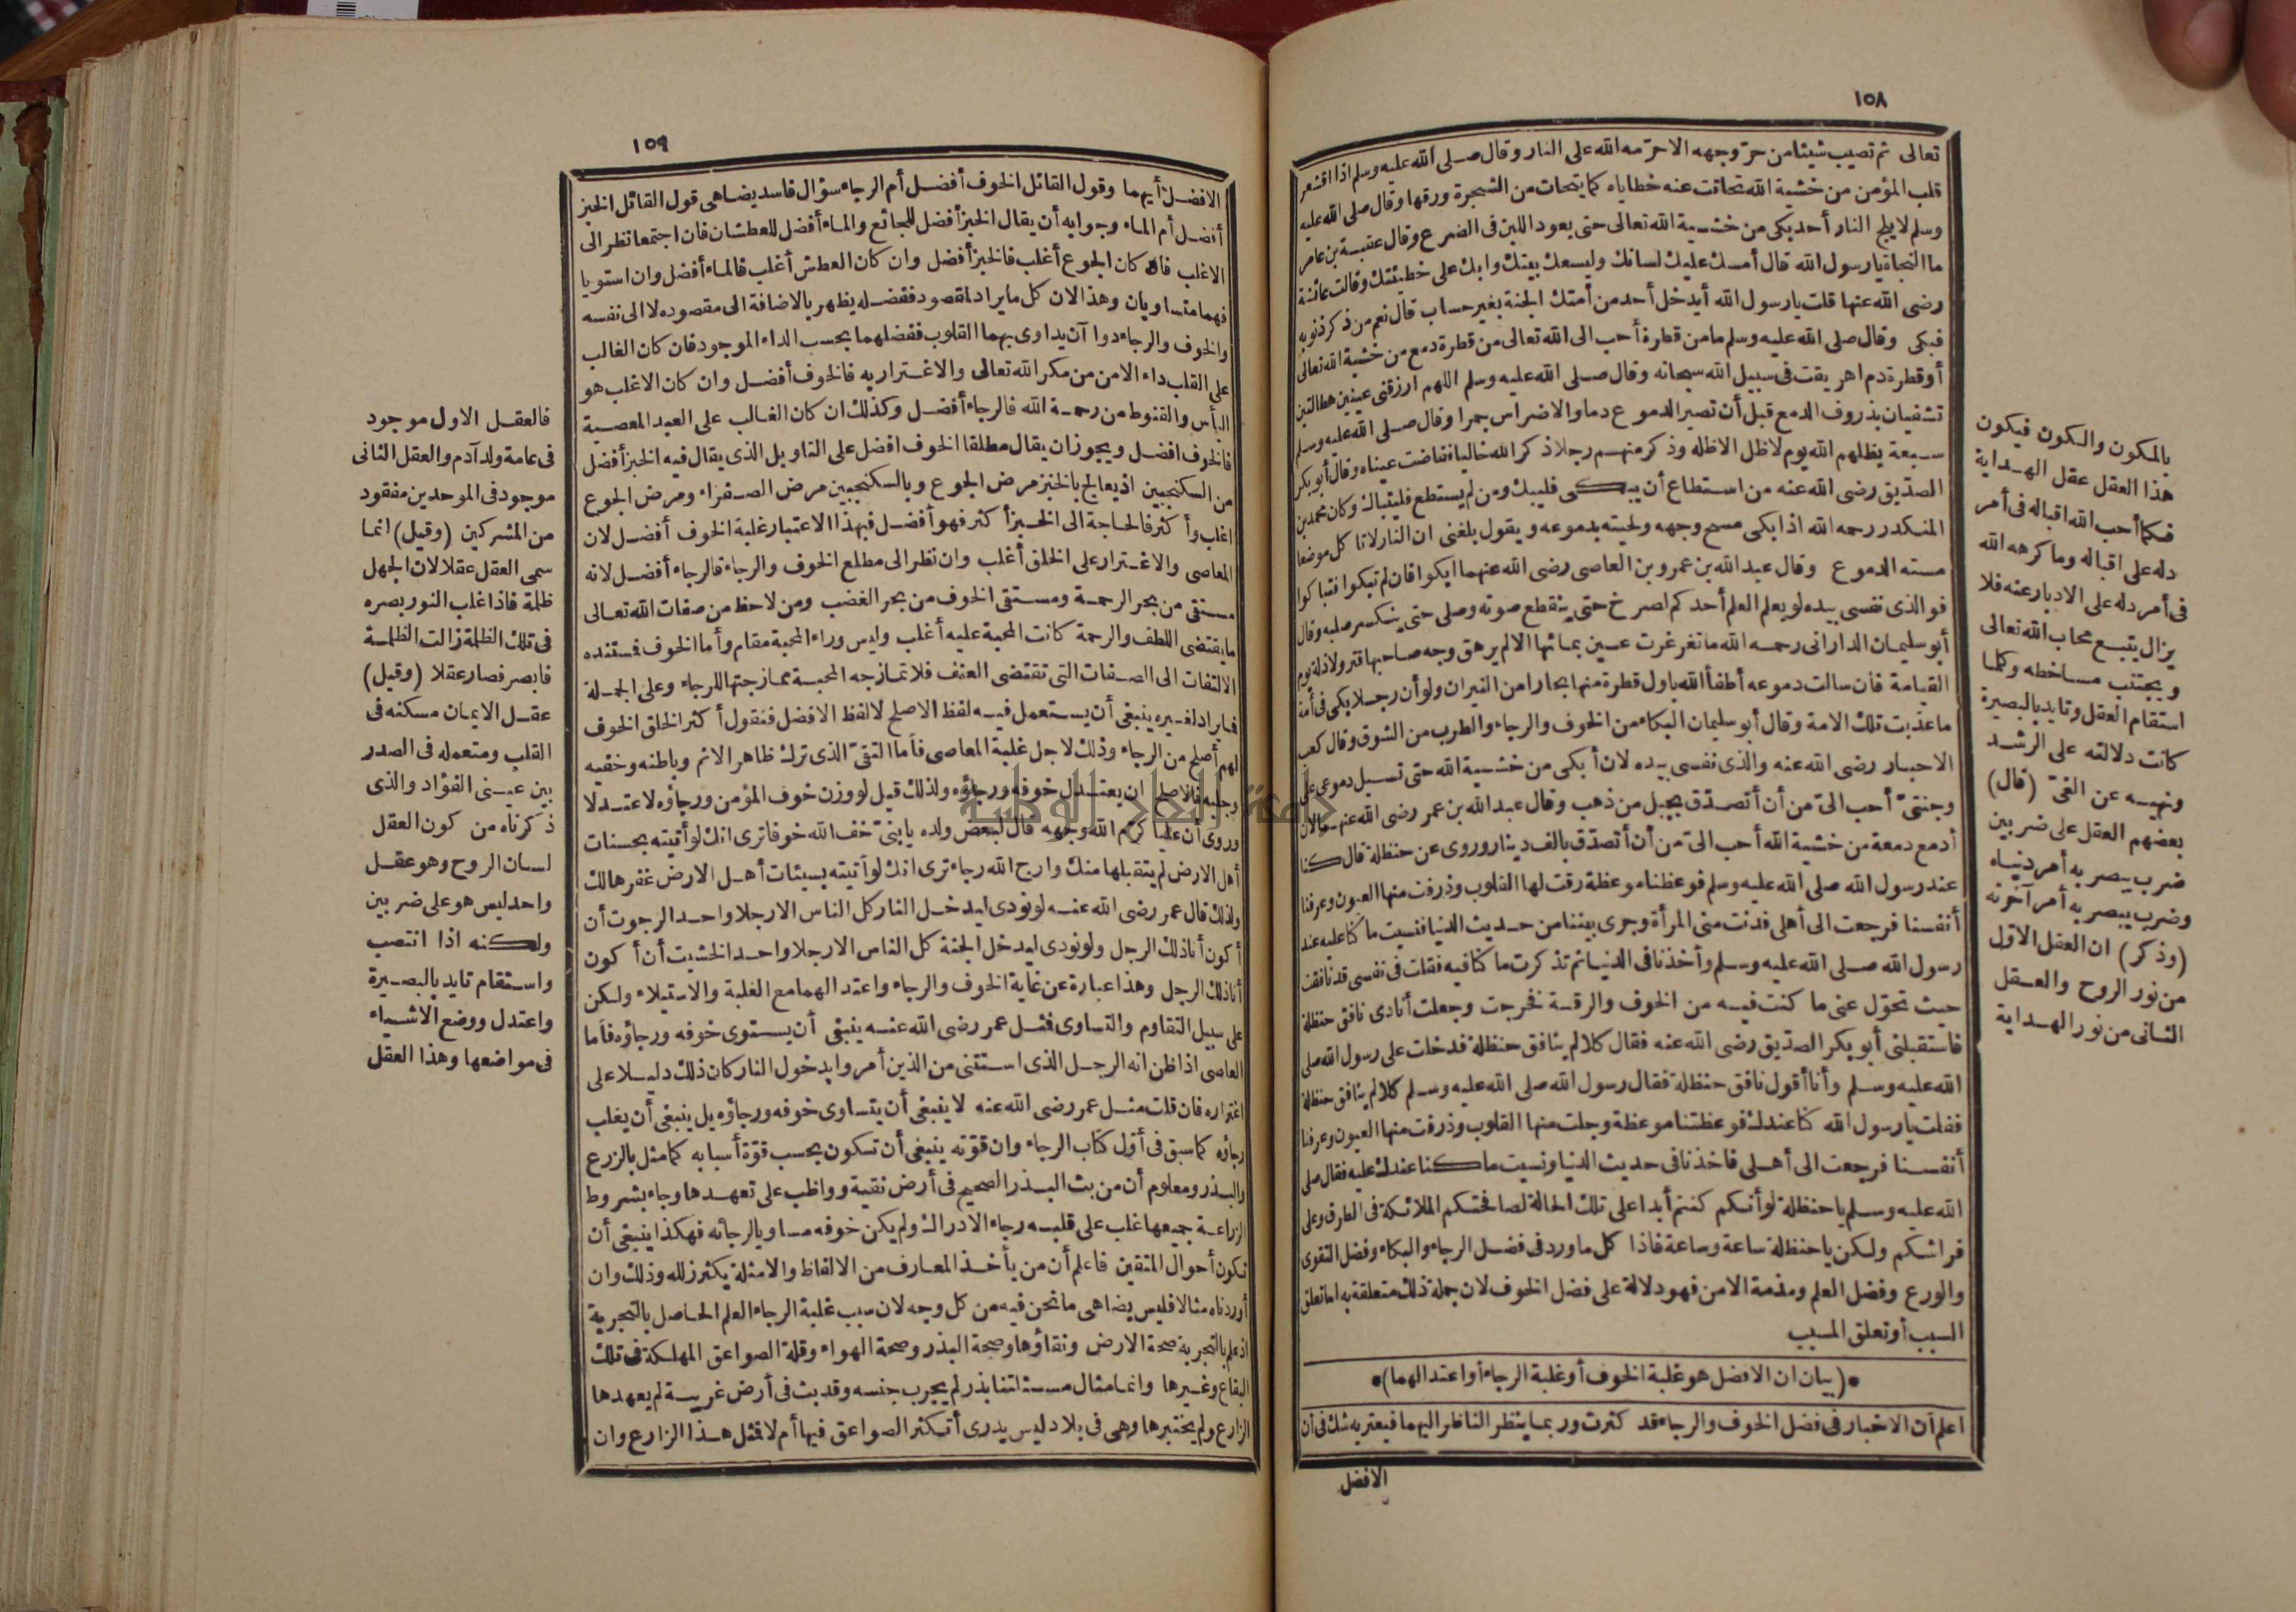 ١٠٨
تعالى ثم تصيب شيئا من حرّ وجهه الا حرّمه الله على النار وقال صلى الله عليه وسلم اذا اقشعر
قلب المؤمن من خشية الله تحاتت عنه خطاياه كما يتحات من الشجرة ورقها وقال صلى الله عليه
وسلم لا يلج النار أحد بكى من خشية الله تعالى حتى يعود اللبن فى الضرع وقال عقبة بن عامر
ما النجاة يا رسول الله قال أمسك عليك لسانك وليسعك بيتك وابك على خطيئتك وقالت عائشة
رضى الله عنها قلت يا رسول الله أيدخل أحد من أمتك الجنة بغير حساب قال نعم من ذكر ذنوبه
فبكى وقال صلى الله عليه وسلم ما من قطرة أحب الى الله تعالى من قطرة دمع من خشية الله تعالى
أو قطرة دم اهريقت فى سبيل الله سبحانه وقال صلى الله عليه وسلم اللهم ارزقنى عينين هطالتين
تشفيان بذروف الدمع قبل أن تصير الدموع دما والاضراس جمرا وقال صلى الله عليه وسلم
سبعة يظلهم الله يوم لا ظل الا ظله وذكر منهم رجلا ذكر الله خاليا ففاضت عيناه وقال أبو بكر
الصدّيق رضى الله عنه من استطاع أن يبكى فليبك ومن لم يستطع فليتباك وكان محمد بن
المنكدر رحمه الله اذا بكى مسح وجهه ولحيته بدموعه ويقول بلغنى ان النار لا تأكل موضعا
مسته الدموع وقال عبد الله بن عمرو بن العاصى رضى الله عنهما ابكوا فان لم تبكوا فتباكوا
فوالذى نفسى بيده لو يعلم العلم أحدكم لصرخ حتى ينقطع صوته وصلى حتى ينكسر صلبه وقال
أبو سليمان الدارانى رحمه الله ما تغرغرت عين بمائها الا لم يرهق وجه صاحبها قتر ولا ذلة يوم
القيامة فان سالت دموعه أطفأ الله بأول قطرة منها بحارا من النيران ولو أن رجلا بكى فى أمة
ما عذبت تلك الامة وقال أبو سليمان البكاء من الخوف والرجاء والطرب من الشوق وقال كعب
الاحبار رضى الله عنه والذى نفسى بيده لان أبكى من خشية الله حتى تسيل دموعى على
وجنتىّ أحب الىّ من أن أتصدّق بجبل من ذهب وقال عبد الله بن عمر رضى الله عنهما لان
أدمع دمعة من خشية الله أحب الىّ من أن أتصدّق بالف دينار وروى عن حنظلة قال كنا
عند رسول الله صلى الله عليه وسلم فوعظنا موعظة رقت لها القلوب وذرفت منها العيون وعرفنا
أنفسنا فرجعت الى أهلى فدنت منى المرأة وجرى بيننا من حديث الدنيا فنسيت ما كنا عليه عند
رسول الله صلى الله عليه وسلم وأخذنا فى الدنيا ثم تذكرت ما كنا فيه فقلت فى نفسى قد نافقت
حيث تحوّل عنى ما كنت فيه من الخوف والرقة فخرجت وجعلت أنادى نافق حنظلة
فاستقبلنى أبو بكر الصدّيق رضى الله عنه فقال كلا لم ينافق حنظلة فدخلت على رسول الله صلى
الله عليه وسلم وأنا أقول نافق حنظلة فقال رسول الله صلى الله عليه وسلم كلا لم ينافق حنظلة
فقلت يا رسول الله كنا عندك فوعظتنا موعظة وجلت منها القلوب وذرفت منها العيون وعرفنا
أنفسنا فرجعت الى أهلى فاخذنا فى حديث الدنيا ونسيت ما كنا عندك عليه فقال صلى
الله عليه وسلم يا حنظلة لو أنكم كنتم أبدا على تلك الحالة لصافحتكم الملائكة فى الطرق وعلى
فراشكم ولكن يا حنظلة ساعة وساعة فاذا كل ما ورد فى فضل الرجاء والبكاء وفضل التقوى
والورع وفضل العلم ومذمة الامن فهو دلالة على فضل الخوف لان جملة ذلك متعلقة به اما تعلق
السبب أو تعلق المسبب
•(بيان ان الافضل هو غلبة الخوف أو غلبة الرجاء أو اعتدالهما)•
اعلم أن الاخبار فى فضل الخوف والرجاء قد كثرت وربما ينظر الناظر اليهما فيعتريه شك فى أن
الافضل
بالمكون والكون فيكون
هذا العقل عقل الهداية
فكما أحب الله اقباله فى أمر
دله على اقباله وما كرهه الله
فى أمر دله على الادبار عنه فلا
يزال يتبع محاب الله تعالى
ويجتنب مساخطه وكلما
استقام العقل وتايد بالبصيرة
كانت دلالته على الرشد
ونهيه عن الغىّ (قال)
بعضهم العقل على ضربين
ضرب يبصر به أمر دنياه
وضرب يبصر به أمر آخرته
(وذكر) ان العقل الاوّل
من نور الروح والعقل
الثانى من نور الهداية
١٥٩
الافضل أيهما وقول القائل الخوف أفضل أم الرجاء سؤال فاسد يضاهى قول القائل الخبز
أفضل أم الماء وجوابه أن يقال الخبز أفضل للجائع والماء أفضل للعطشان فان اجتمعا نظر الى
الاغلب فان كان الجوع أغلب فالخبز أفضل وان كان العطش أغلب فالماء أفضل وان استويا
فهما متساويان وهذا لان كل ما يراد لمقصود ففضله يظهر بالاضافة الى مقصوده لا الى نفسه
والخوف والرجاء دوا آن يداوى بهما القلوب ففضلهما بحسب الداء الموجود فان كان الغالب
على القلب داء الامن من مكر الله تعالى والاغترار به فالخوف أفضل وان كان الاغلب هو
اليأس والقنوط من رحمة الله فالرجاء أفضل وكذلك ان كان الغالب على العبد المعصية
فالخوف افضل ويجوز ان يقال مطلقا الخوف افضل على التاويل الذى يقال فيه الخبز أفضل
من السكنجبين اذ يعالج بالخبز مرض الجوع وبالسكنجبين مرض الصفراء ومرض الجوع
اغلب وأكثر فالحاجة الى الخبز أكثر فهو أفضل فبهذا الاعتبار غلبة الخوف أفضل لان
المعاصى والاغترار على الخلق أغلب وان نظر الى مطلع الخوف والرجاء فالرجاء أفضل لانه
مستقى من بحر الرحمة ومستقى الخوف من بحر الغضب ومن لاحظ من صفات الله تعالى
ما يقتضى اللطف والرحمة كانت المحبة عليه أغلب وليس وراء المحبة مقام وأما الخوف فمستنده
الالتفات الى الصفات التى تقتضى العنف فلا تمازجه المحبة ممازجتها للرجاء وعلى الجملة
فما يراد لغيره ينبغى أن يستعمل فيه لفظ الاصلح لا لفظ الافضل فنقول أكثر الخلق الخوف
لهم أصلح من الرجاء وذلك لاجل غلبة المعاصى فأما التقىّ الذى ترك ظاهر الاثم وباطنه وخفيه
وجليه فالاصلح ان يعتدل خوفه ورجاؤه ولذلك قيل لو وزن خوف المؤمن ورجاؤه لاعتدلا
وروى أن عليا كرم الله وجهه قال لبعض ولده يا بنىّ خف الله خوفا ترى انك لو أتيته بحسنات
أهل الارض لم يتقبلها منك وارج الله رجاء ترى انك لو أتيته بسيئات أهل الارض غفرها لك
ولذلك قال عمر رضى الله عنه لو نودى ليدخل النار كل الناس الا رجلا واحدا لرجوت أن
أكون أنا ذلك الرجل ولو نودى ليدخل الجنة كل الناس الا رجلا واحدا لخشيت أن أكون
أنا ذلك الرجل وهذا عبارة عن غاية الخوف والرجاء واعتدالهما مع الغلبة والاستيلاء ولكن
على سبيل التقاوم والتساوى فمثل عمر رضى الله عنه ينبغى أن يستوى خوفه ورجاؤه فأما
العاصى اذا ظن انه الرجل الذى استثنى من الذين أمروا بدخول النار كان ذلك دليلا على
اغتراره فان قلت مثل عمر رضى الله عنه لا ينبغى أن يتساوى خوفه ورجاؤه بل ينبغى أن يغلب
رجاؤه كما سبق فى أوّل كتاب الرجاء وان قوّته ينبغى أن تكون بحسب قوّة أسبابه كما مثل بالزرع
والبذر ومعلوم أن من بث البذر الصحيح فى أرض نقية وواظب على تعهدها وجاء بشروط
الزراعة جميعها غلب على قلبه رجاء الادراك ولم يكن خوفه مساويا لرجائه فهكذا ينبغى أن
تكون أحوال المتقين فاعلم أن من يأخذ المعارف من الالفاظ والامثلة يكثر زلله وذلك وان
أوردناه مثالا فليس يضاهى ما نحن فيه من كل وجه لان سبب غلبة الرجاء العلم الحاصل بالتجربة
اذ علم بالتجربة صحة الارض ونقاؤها وصحة البذر وصحة الهواء وقلة الصواعق المهلكة فى تلك
البقاع وغيرها وانما مثال مسئلتنا بذر لم يجرب جنسه وقد بث فى أرض غريبة لم يعهدها
الزارع ولم يختبرها وهى فى بلاد ليس يدرى أتكثر الصواعق فيها أم لا فمثل هذا الزارع وان
فالعقل الاول موجود
فى عامة ولد آدم والعقل الثانى
موجود فى الموحدين مفقود
من المشركين (وقيل) انما
سمى العقل عقلا لان الجهل
ظلمة فاذا غلب النور بصره
فى تلك الظلمة زالت الظلمة
فابصر فصار عقلا (وقيل)
عقل الايمان مسكنه فى
القلب ومتعمله فى الصدر
بين عينى الفؤاد والذى
ذكرناه من كون العقل
لسان الروح وهو عقل
واحد ليس هو على ضربين
ولكنه اذا انتصب
واستقام تايد بالبصيرة
واعتدل ووضع الاشياء
فى مواضعها وهذا العقل
جامعة النجاح الوطنية